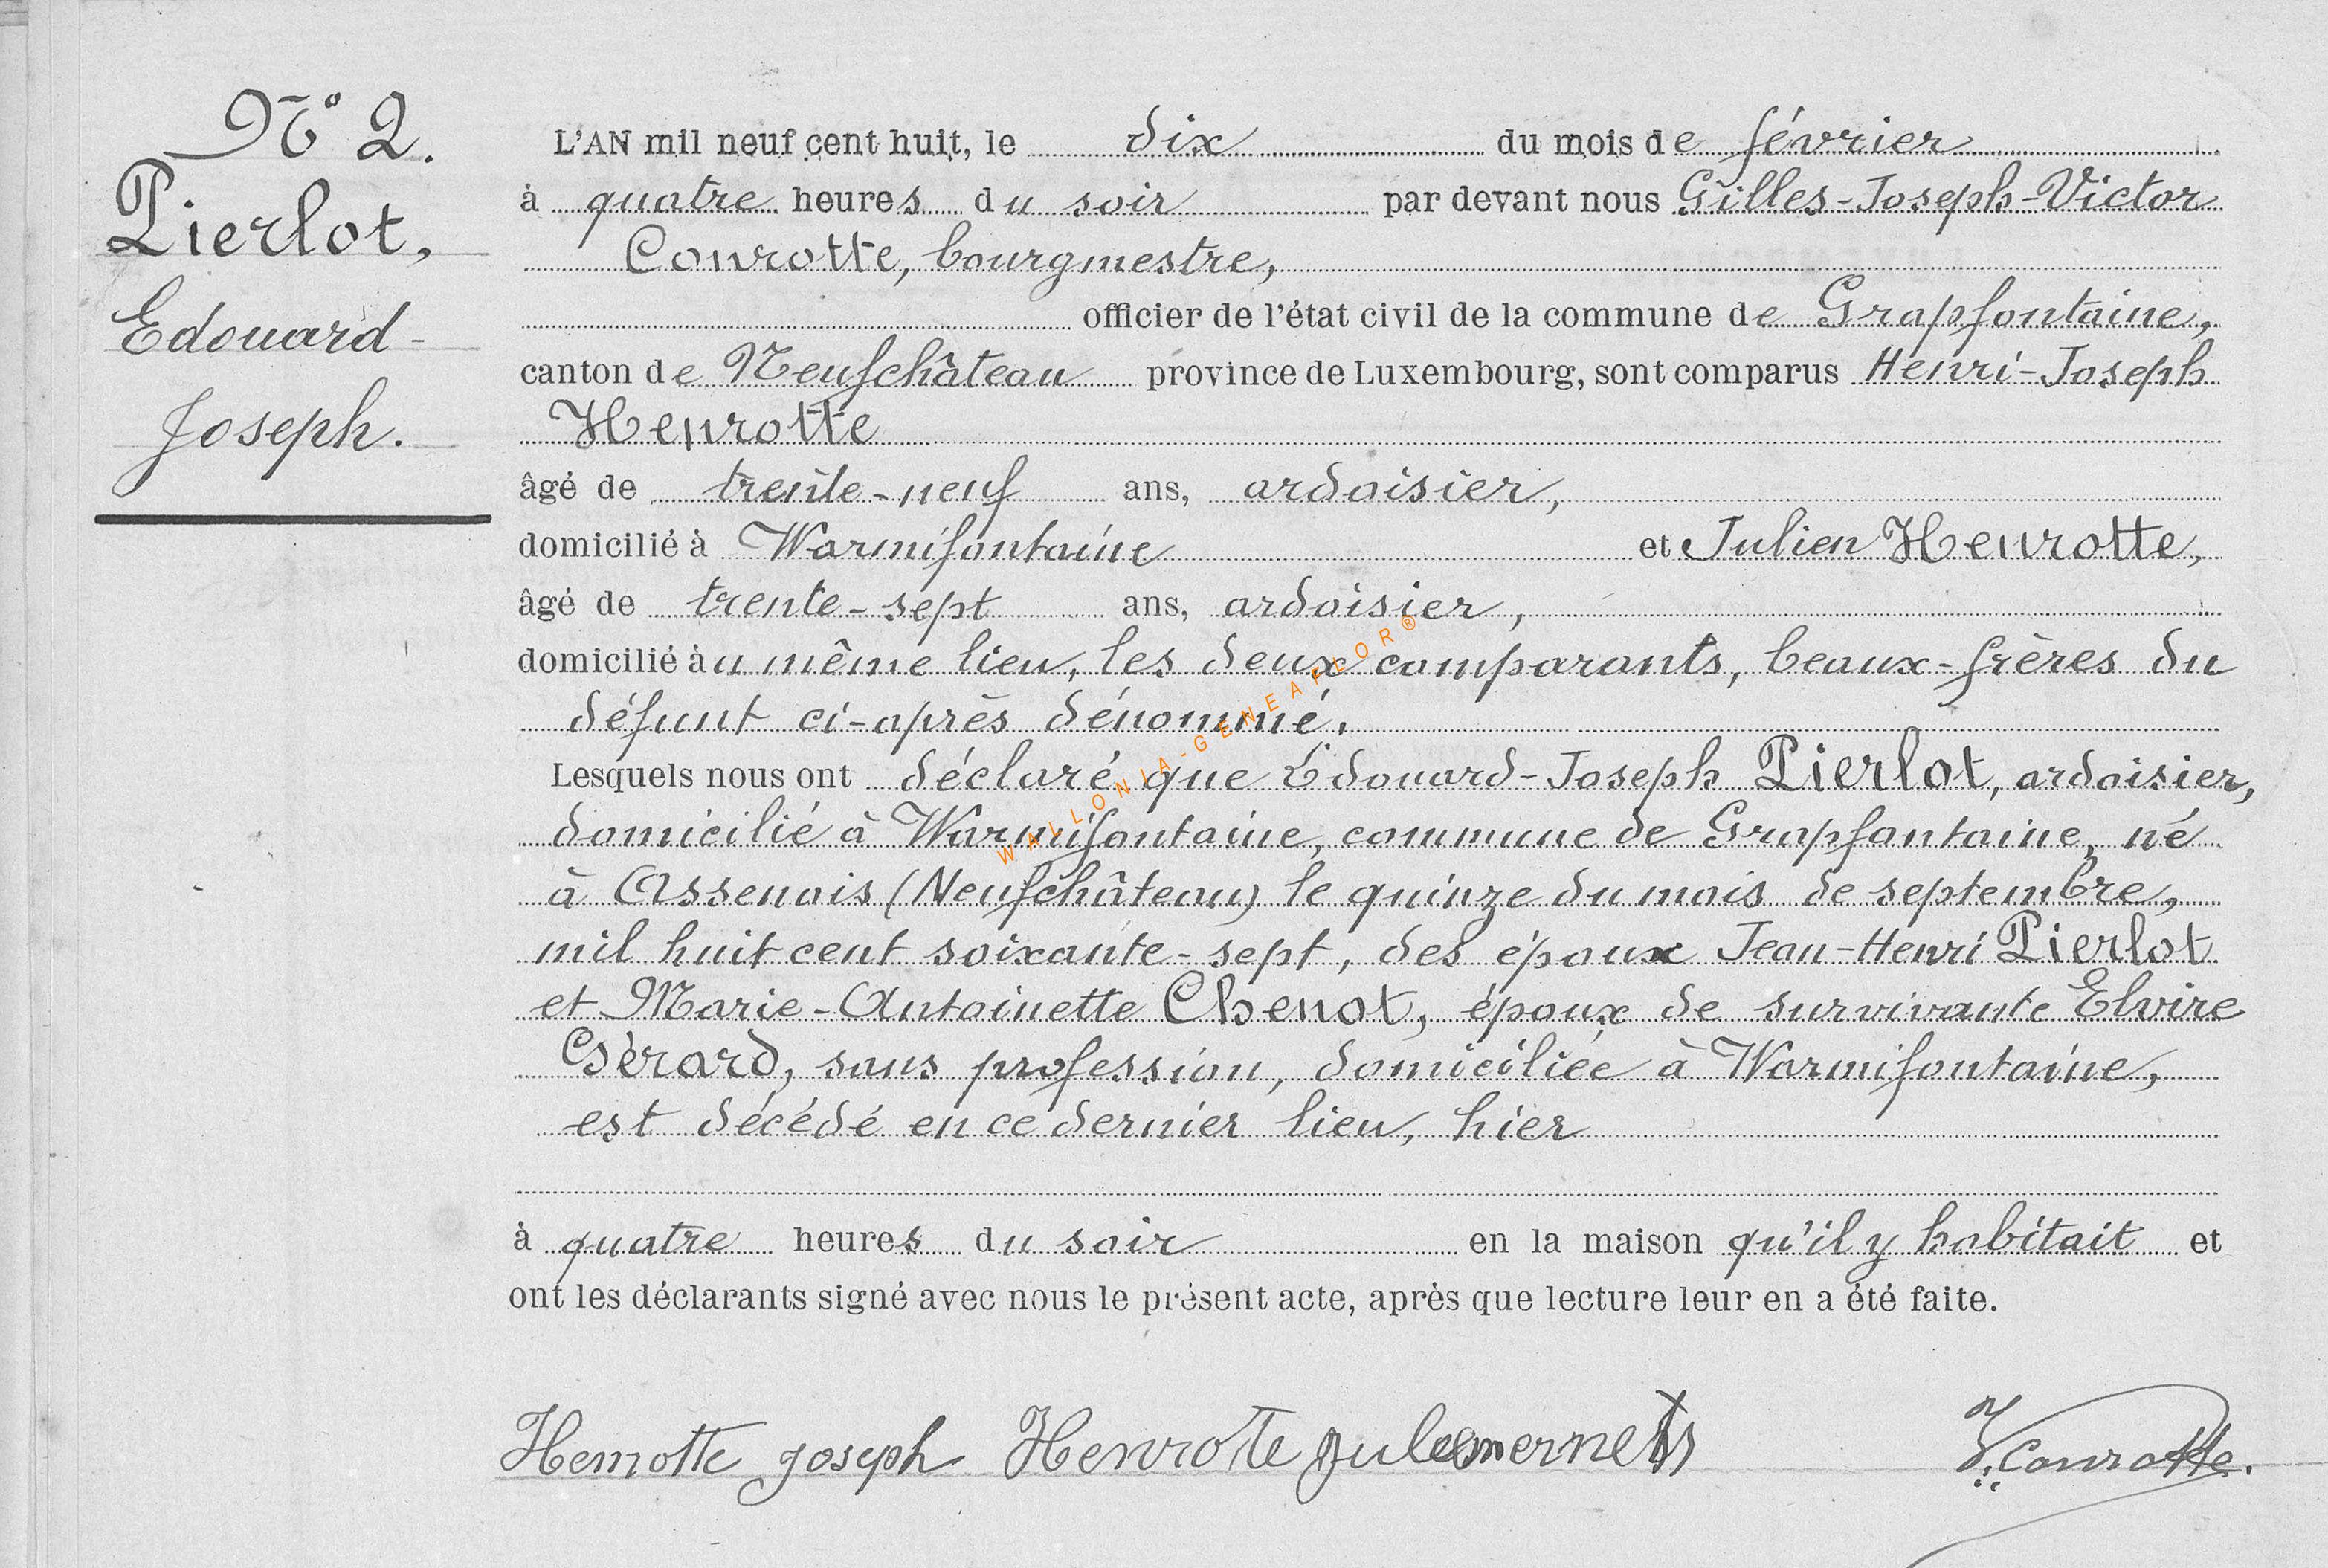 N° 2.
Pierlot,
Edouard-
Joseph.
L'AN mil neuf cent huit, le dix du mois de février
à quatre heures du soir par devant nous Gilles-Joseph-Victor
Conrotte, bourgmestre,
officier de l'état civil de la commune de Grapfontaine,
canton de Neufchâteau province de Luxembourg, sont comparus Henri-Joseph
Henrotte
âgé de trente-neuf ans, ardoisier,
domicilié à Warmifontaine et Julien Henrotte,
âgé de trente-sept ans, ardoisier,
domicilié au même lieu, les deux comparants, beaux-frères du
défunt ci-après dénommé.
Lesquels nous ont déclaré que Edouard-Joseph Pierlot, ardoisier,
domicilié à Warmifontaine, commune de Grapfontaine, né
à Assenois (Neufchâteau) le quinze du mois de septembre,
mil huit cent soixante-sept, des époux Jean-Henri Pierlot
et Marie-Antoinette Chenot, époux de survivante Elvire
Gérard, sans profession, domiciliée à Warmifontaine,
est décédé en ce dernier lieu, hier
à quatre heures du soir en la maison qu'il y habitait et
ont les déclarants signé avec nous le présent acte, après que lecture leur en a été faite.
Henrotte Joseph Henrotte V. Conrotte.
WALLONIA-GENEAFLOR®